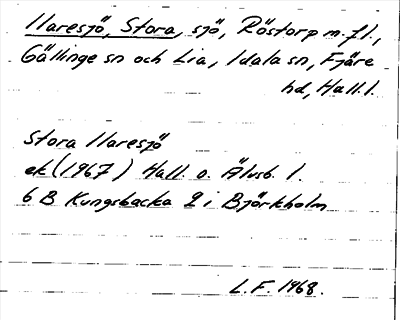 Haresjö, Stora, sjö, Röstorp m.fl.,
Gällinge sn och Lia, Idala sn, Fjäre
hd, Hall. l.
Stora Haresjö
ek (1967) Hall. o. Älvsb. l.
6 B Kungsbacka 2 i Björkholm
L.F. 1968.